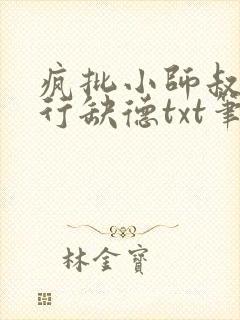 疯批小师叔
行缺德txt笔
林金寶